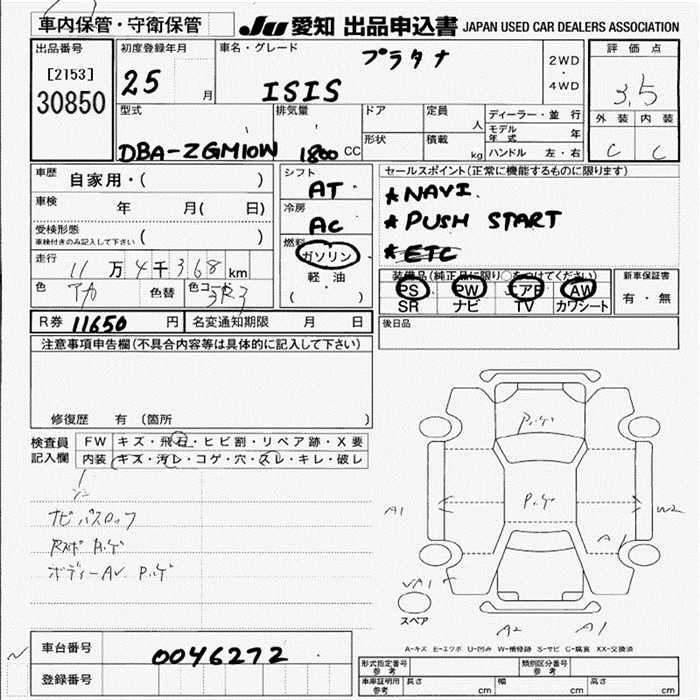 車内保管・守衛保管
JU 愛知 出品申込書 JAPAN USED CAR DEALERS ASSOCIATION
出品番号
[2153]
30850
初度登録年月
25 月
車名・グレード
プラタナ
ISIS
2WD
・
4WD
評価点
3.5
外装 内装
C C
型式
DBA-ZGM10W
排気量
1800 CC
ドア
形状
定員 人
積載 kg
ディーラー・並行
モデル年式 年
ハンドル 左・右
車歴 自家用・( )
車検 年 月( 日)
受検形態
車検付きのみ記入して下さい ( )
走行 11万4千368km
色 アカ 色替 色コード 3R3
シフト
AT
冷房
AC
燃料
ガソリン
軽・油
( )
セールスポイント(正常に機能するものに限ります)
★NAVI.
★PUSH START
★ETC
装備品(純正品に限り○をつけてください)
PS PW エアB AW
SR ナビ TV カワシート
新車保証書
有・無
R券 11650 円 名変通知期限 月 日
後日品
注意事項申告欄(不具合内容等は具体的に記入して下さい)
修復歴 有 (箇所 )
検査員記入欄
FW キズ・飛石・ヒビ割・リペア跡・X要
内装 キズ・汚レ・コゲ・穴・スレ・キレ・破レ
ナビバスロック
ボディーAV
A1
W2
A1
スペア
A2
A1
A-キズ E-エクボ U-凹み W-補修跡 S-サビ C-腐食 XX-交換済
車台番号 0046272
登録番号
形式指定番号 参考 類別区分番号 参考
車庫証明用 参考 長さ cm 幅 cm 高さ cm